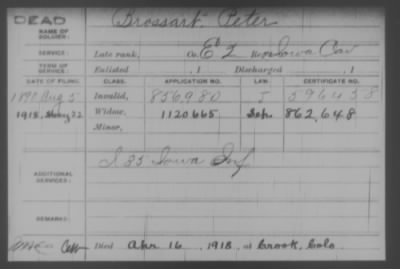 DEAD
Brossart, Peter
NAME OF SOLDIER:
SERVICE:
Late rank, Co. E 2 Reg't Iowa Cav
TERM OF SERVICE:
Enlisted , 1 Discharged , 1
DATE OF FILING. CLASS. APPLICATION NO. LAW CERTIFICATE NO.
Aug 5 Invalid, 856980 J 596438
1918, May 22 Widow, 1120665 862,648
Minor,
I 35 Iowa Inf
ADDITIONAL SERVICES:
REMARKS:
Died Apr. 16, 1918, at Crook, Colo.